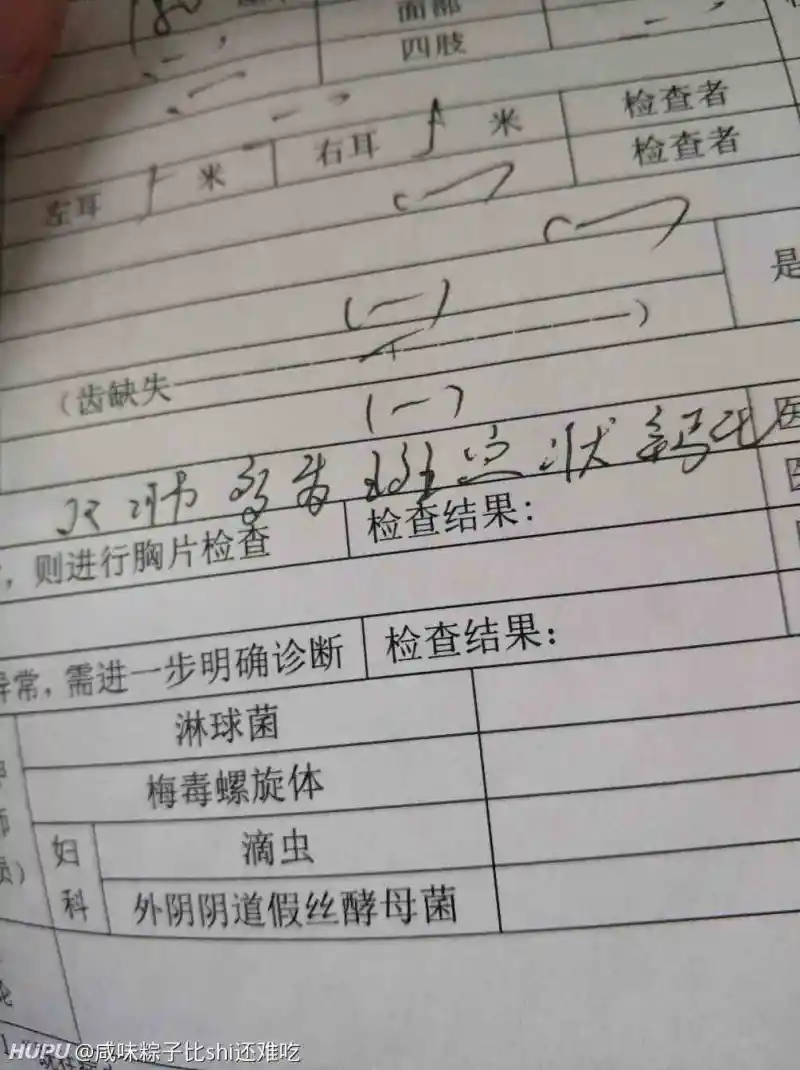 180
面部
四肢
左耳 5 米 右耳 5 米 检查者
检查者
(一)
是
(齿缺失 )
(一)
双肺多发斑点状钙化 医
,则进行胸片检查 检查结果:
异常,需进一步明确诊断 检查结果:
淋球菌
梅毒螺旋体
妇科 滴虫
外阴阴道假丝酵母菌
HUPU @咸味粽子比shi还难吃